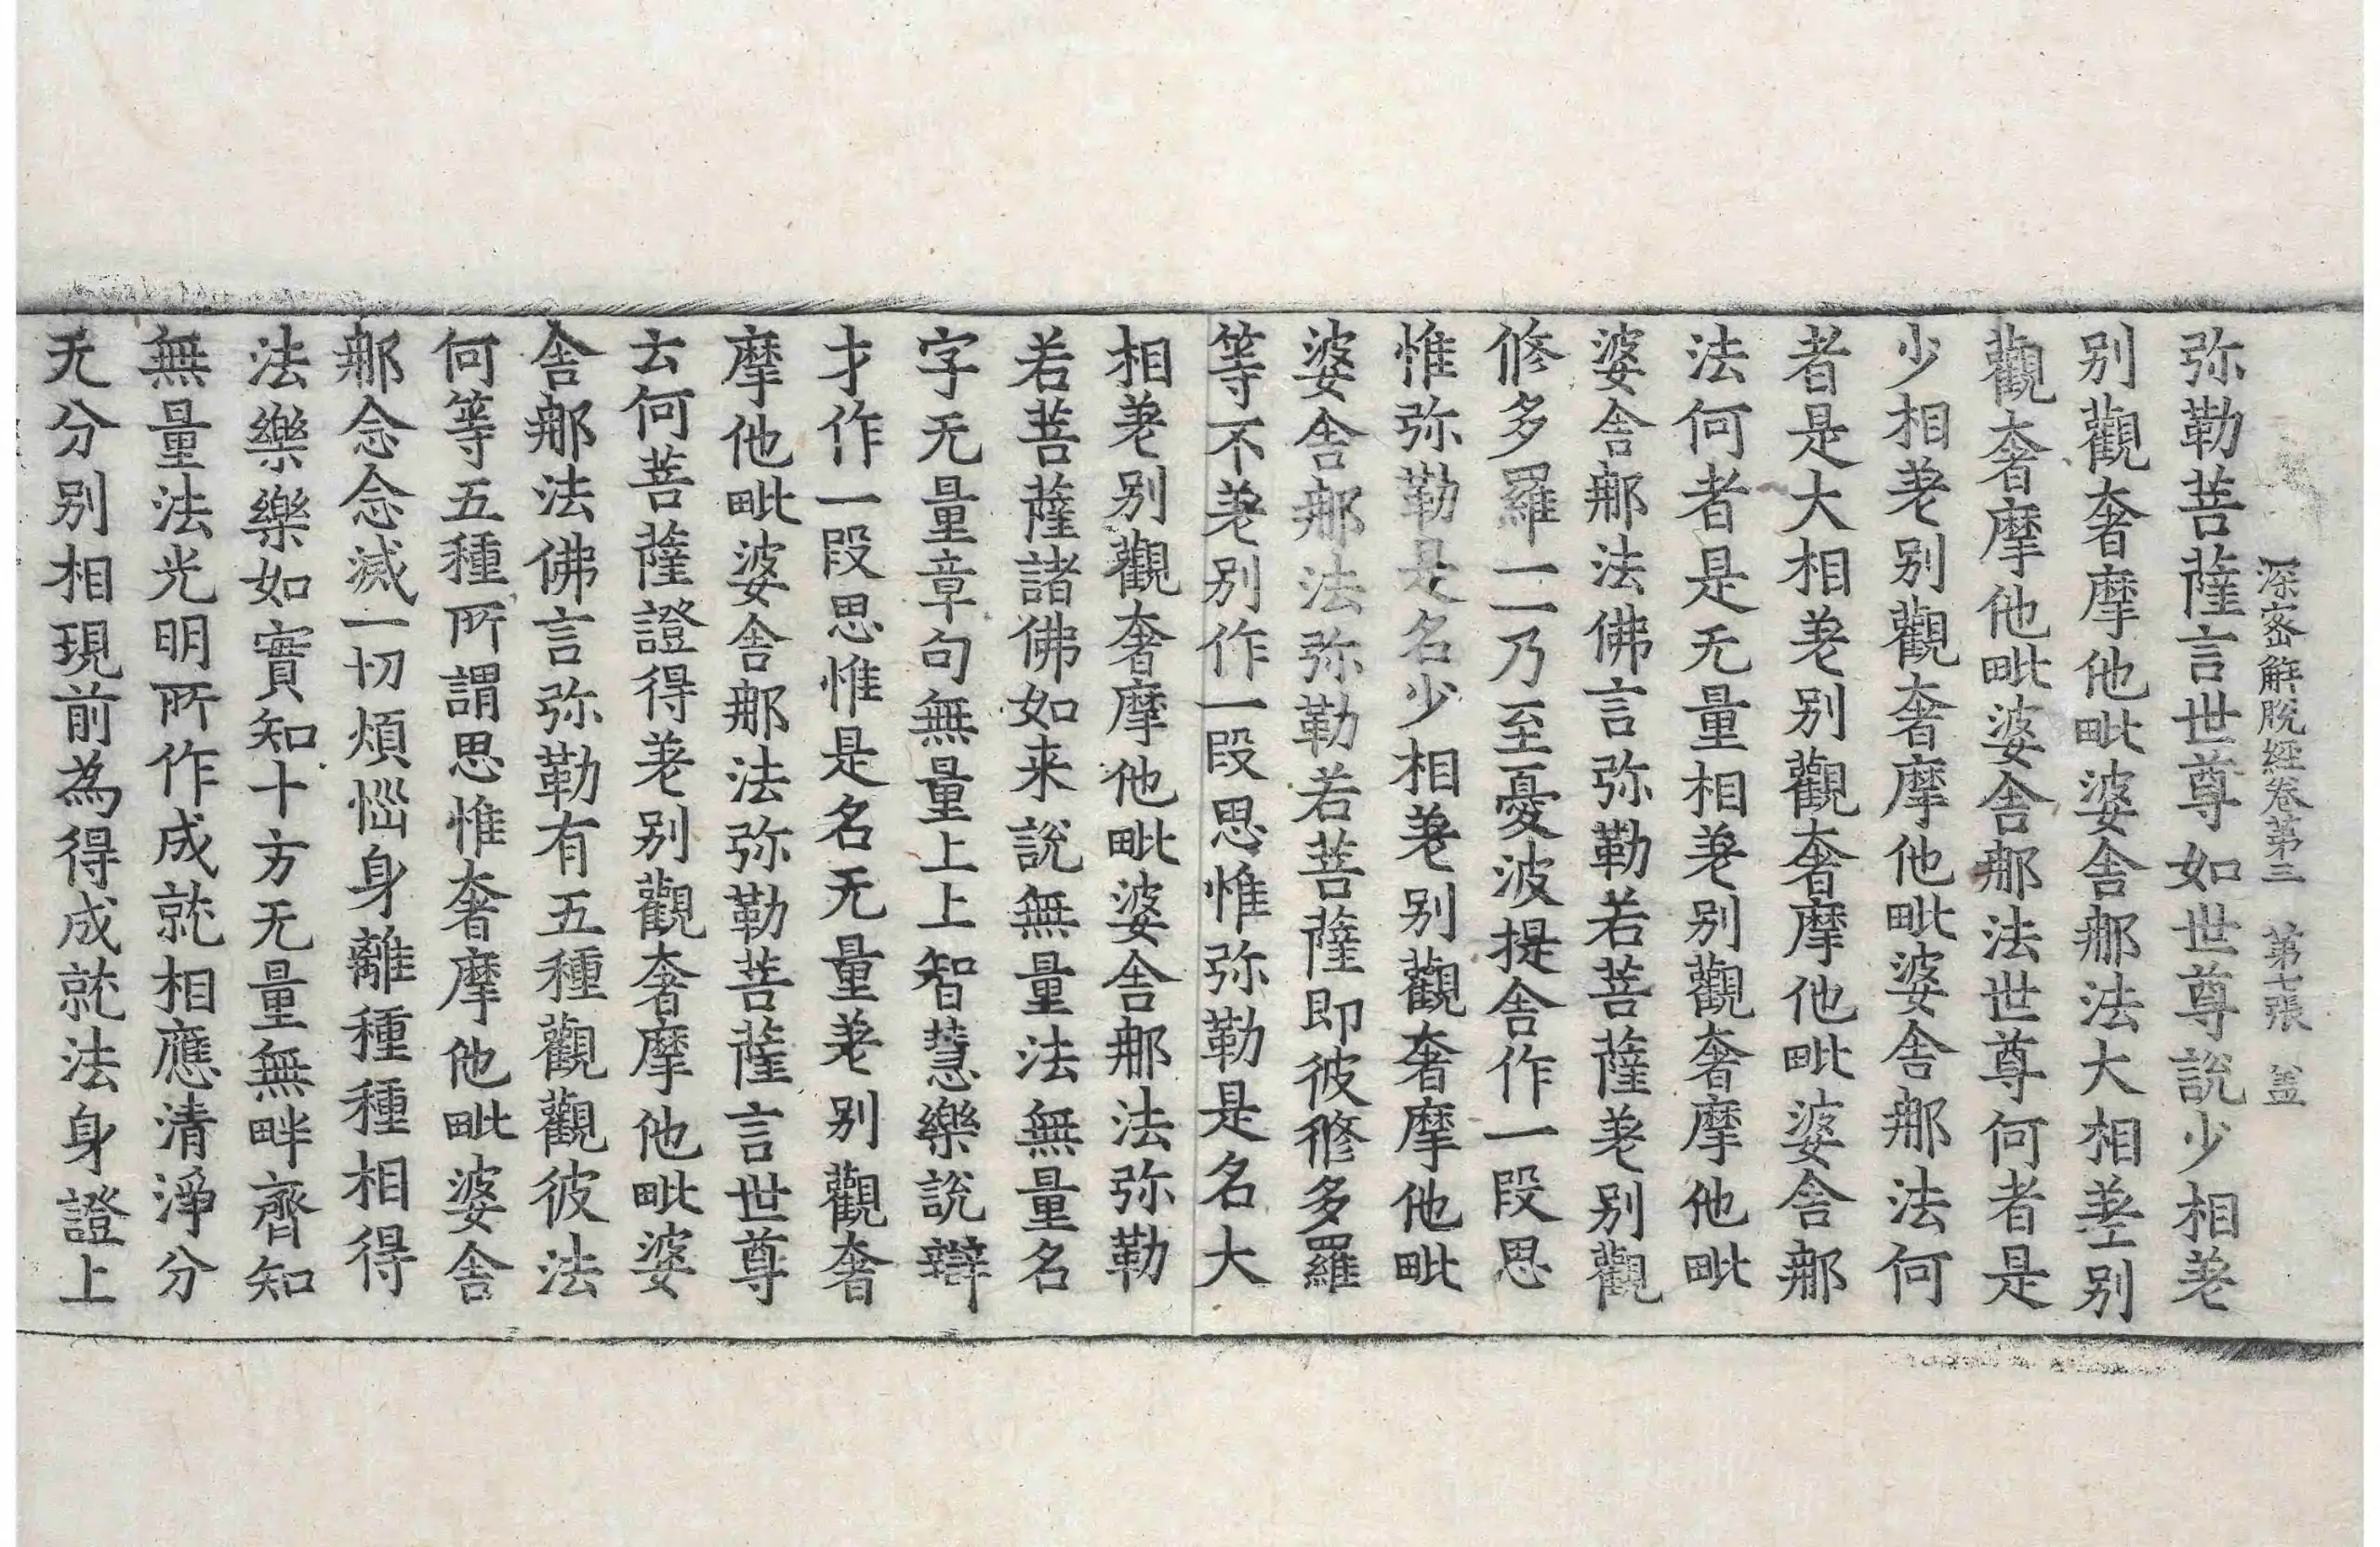 深密解脫經卷第三　第七張　盖
弥勒菩薩言世尊如世尊說少相差
别觀奢摩他毗婆舍那法大相差别
觀奢摩他毗婆舍那法世尊何者是
少相差别觀奢摩他毗婆舍那法何
者是大相差别觀奢摩他毗婆舍那
法何者是无量相差别觀奢摩他毗
婆舍那法佛言弥勒若菩薩差别觀
修多羅一一乃至憂波提舍作一段思
惟弥勒是名少相差别觀奢摩他毗
婆舍那法弥勒若菩薩即彼修多羅
等不差别作一段思惟弥勒是名大
相差别觀奢摩他毗婆舍那法弥勒
若菩薩諸佛如来說無量法無量名
字无量章句無量上上智慧樂說辯
才作一段思惟是名无量差别觀奢
摩他毗婆舍那法弥勒菩薩言世尊
云何菩薩證得差别觀奢摩他毗婆
舍那法佛言弥勒有五種觀觀彼法
何等五種所謂思惟奢摩他毗婆舍
那念念滅一切煩惱身離種種相得
法樂樂如實知十方无量無畔齊知
無量法光明所作成就相應清淨分
无分别相現前為得成就法身證上